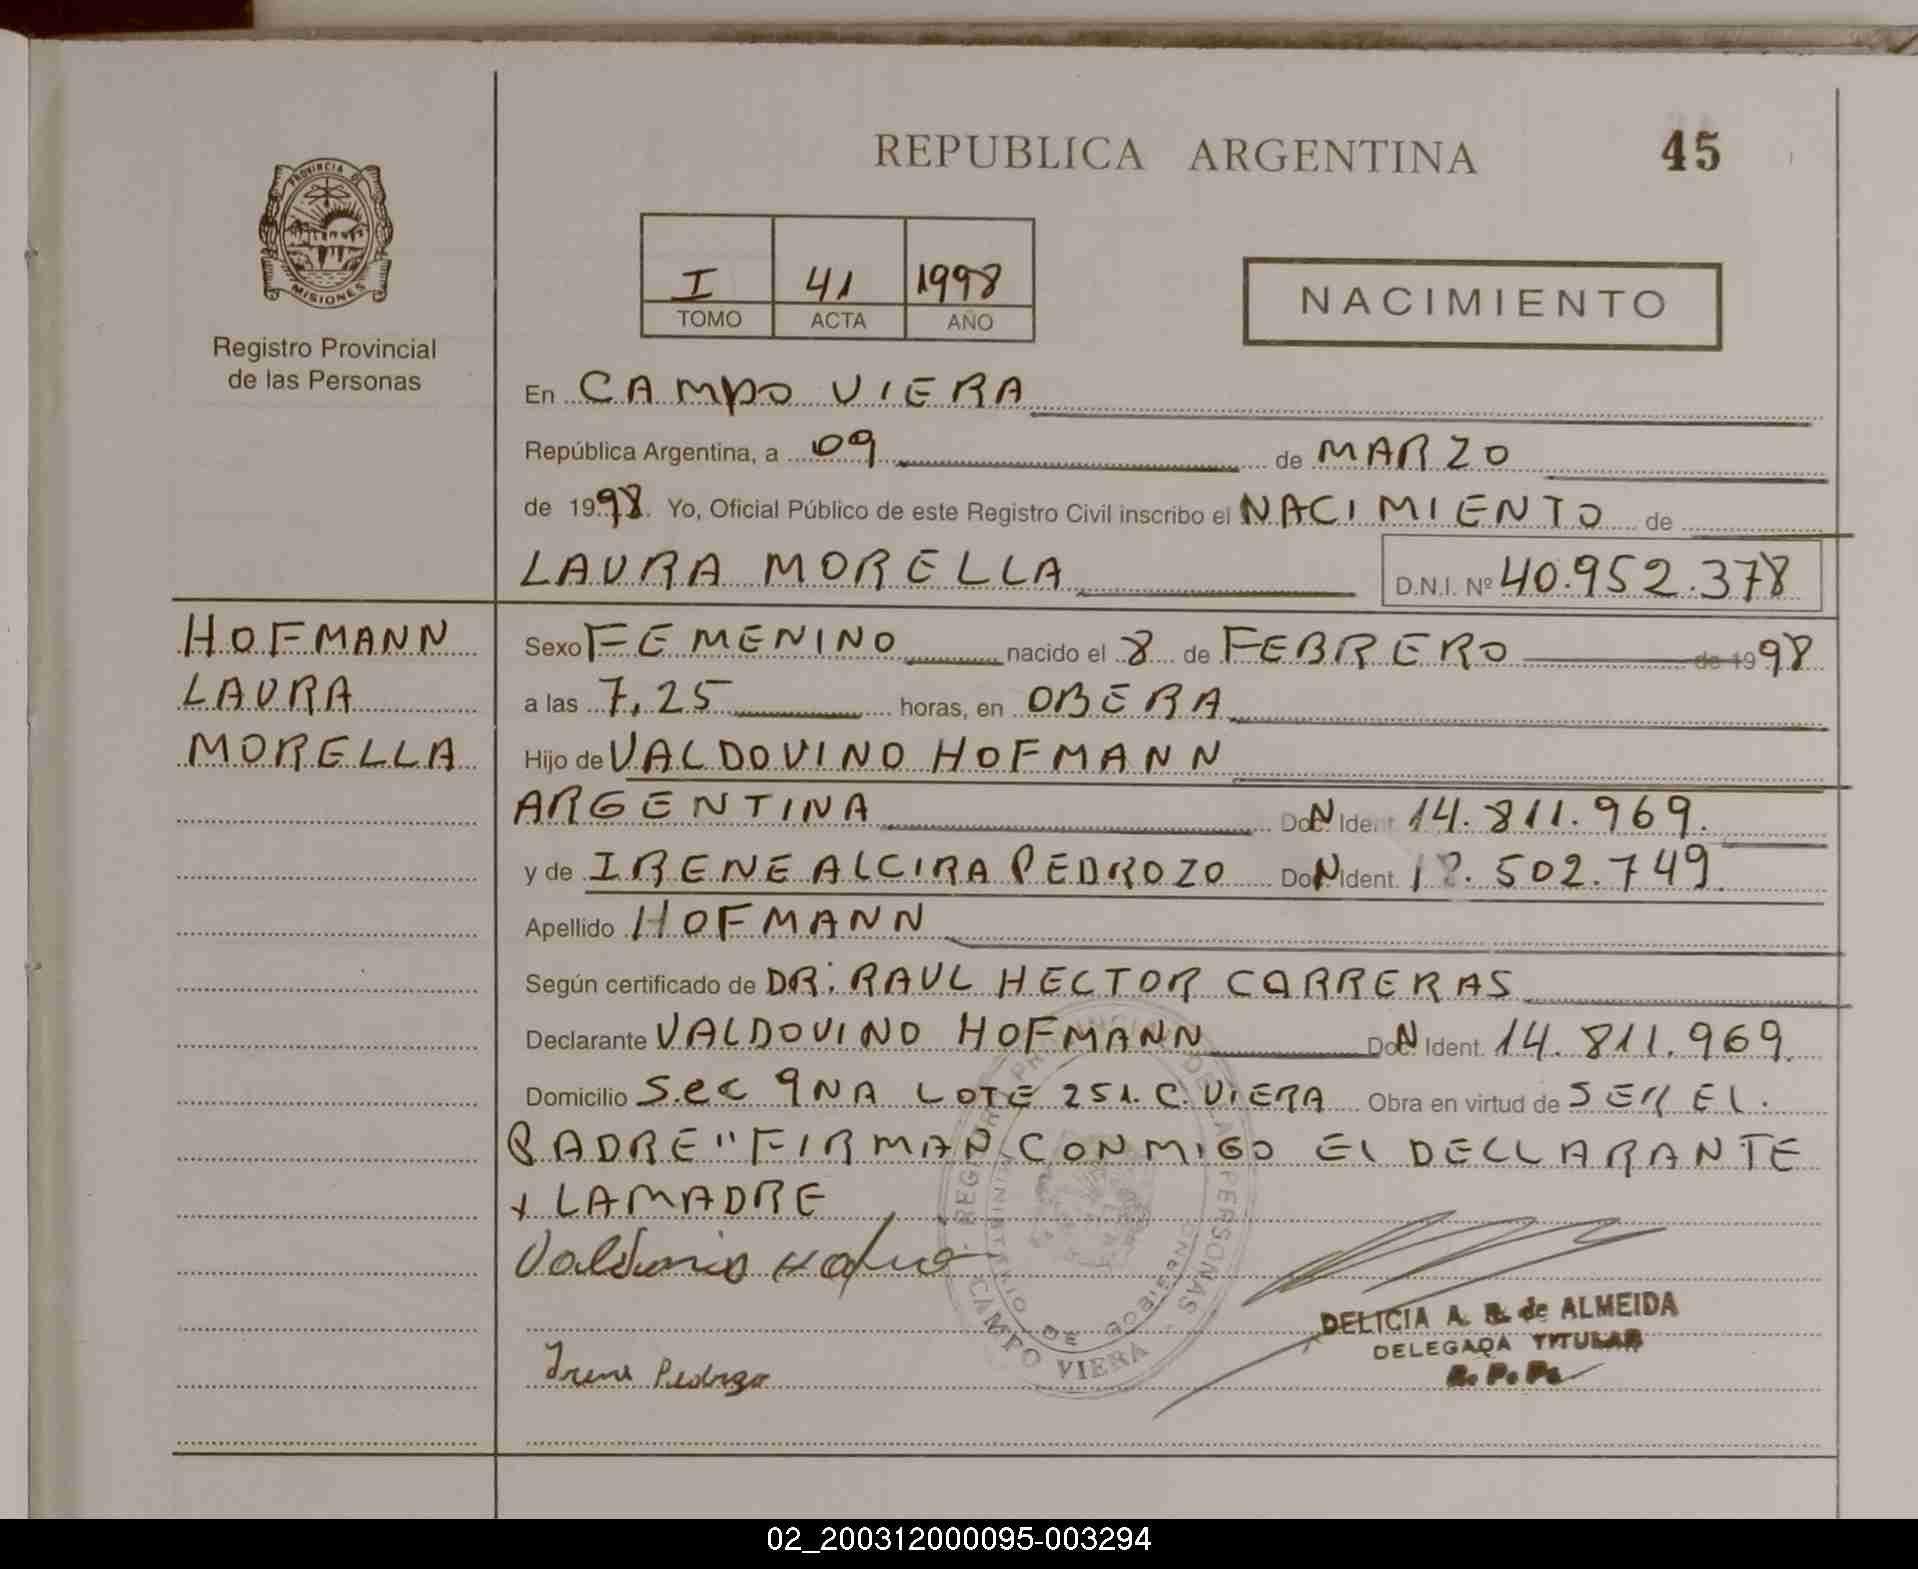 REPUBLICA ARGENTINA
45
PROVINCIA DE
MISIONES
Registro Provincial
de las Personas
I 41 1998
TOMO ACTA AÑO
NACIMIENTO
En CAMPO VIERA
República Argentina, a 09 de MARZO
de 1998. Yo, Oficial Público de este Registro Civil inscribo el NACIMIENTO de
LAURA MORELLA D.N.I. Nº 40.952.378
HOFMANN
LAURA
MORELLA
Sexo FEMENINO nacido el 8 de FEBRERO de 1998
a las 7,25 horas, en OBERA
Hijo de VALDOVINO HOFMANN
ARGENTINA Doc. N Ident 14.811.969.
y de IRENE ALCIRA PEDROZO Doc. N Ident. .502.749.
Apellido HOFMANN
Según certificado de DR. RAUL HECTOR CARRERAS
Declarante VALDOVINO HOFMANN Doc. N Ident. 14.811.969.
Domicilio Sec 9NA LOTE 251. C. VIERA Obra en virtud de SER EL
PADRE" FIRMAN CONMIGO EL DECLARANTE
Y LA MADRE
Irene Pedrozo
CAMPO VIERA
DELICIA A. de ALMEIDA
DELEGADA TITULAR
R. P. Ps
02_200312000095-003294